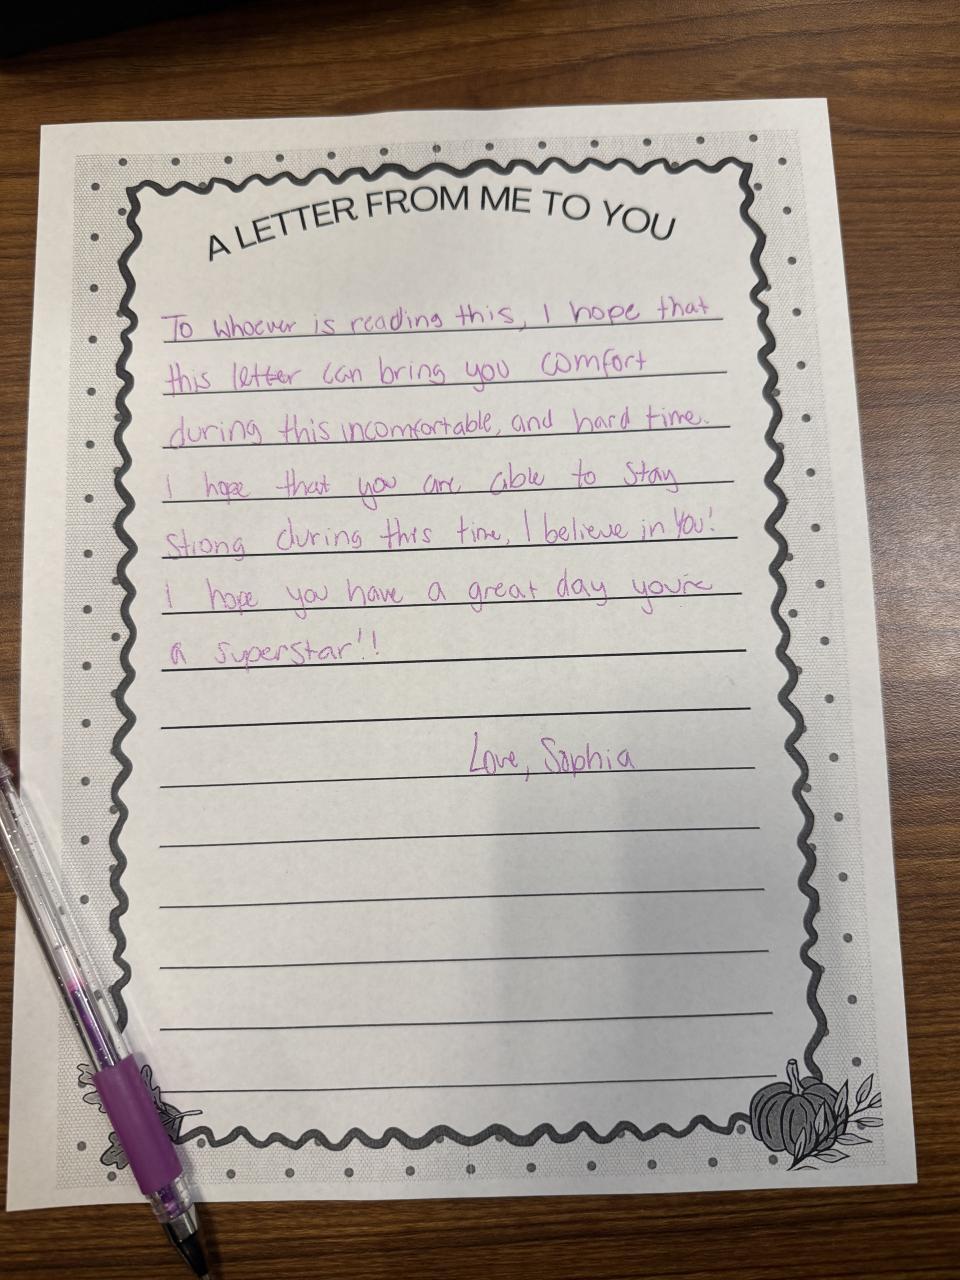 A LETTER FROM ME TO YOU
To whoever is reading this, I hope that
this letter can bring you comfort
during this incomfortable, and hard time.
I hope that you are able to stay
strong during this time, I believe in You!
I hope you have a great day you're
a superstar!!
Love, Sophia